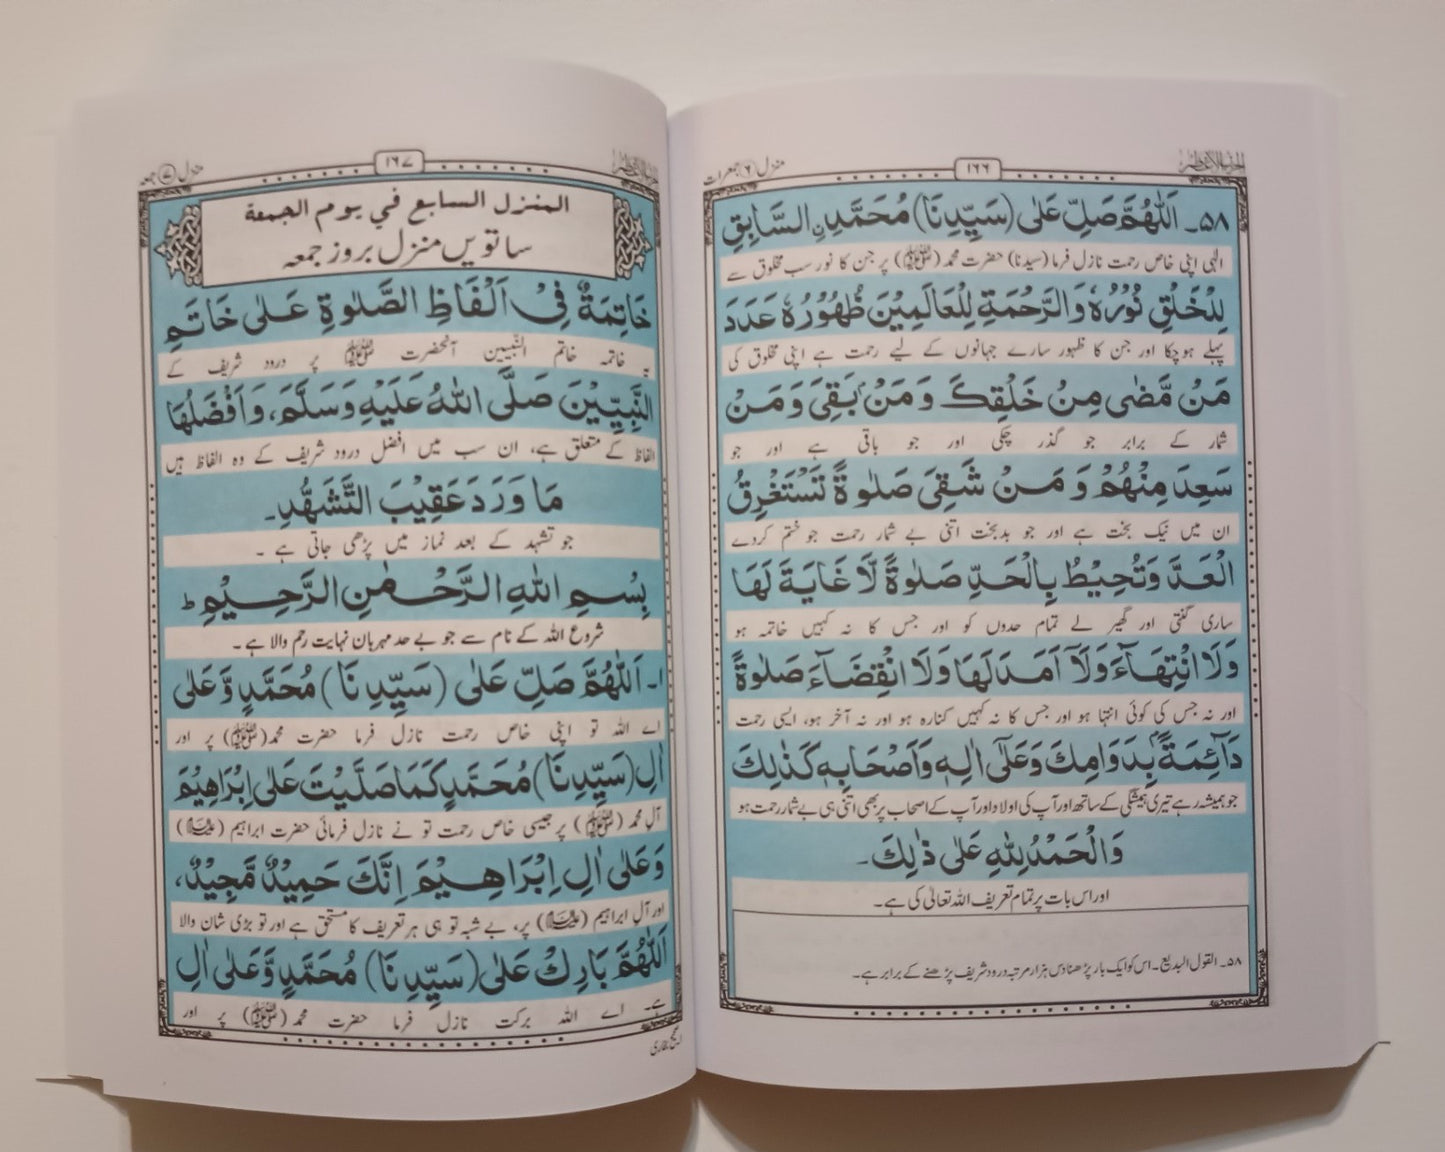 منزل ۶ جمعرات
۱۶۶
۵۸۔ اَللّٰهُمَّ صَلِّ عَلٰى (سَيِّدِنَا) مُحَمَّدِنِ السَّابِقِ
الہی اپنی خاص رحمت نازل فرما (سیدنا) حضرت محمد (ﷺ) پر جن کا نور سب مخلوق سے
لِلْخَلْقِ نُوْرُهٗ وَالرَّحْمَةِ لِلْعَالَمِيْنَ ظُهُوْرُهٗ عَدَدَ
پہلے ہوچکا اور جن کا ظہور سارے جہانوں کے لیے رحمت ہے اپنی مخلوق کی
مَنْ مَّضٰى مِنْ خَلْقِكَ وَمَنْ بَقِيَ وَمَنْ
شمار کے برابر جو گذر چکی اور جو باقی ہے اور جو
سَعِدَ مِنْهُمْ وَمَنْ شَقِيَ صَلٰوةً تَسْتَغْرِقُ
ان میں نیک بخت ہے اور جو بدبخت اتنی بے شمار رحمت جو ختم کردے
الْعَدَّ وَتُحِيْطُ بِالْحَدِّ صَلٰوةً لَّا غَايَةَ لَهَا
ساری گنتی اور گھیر لے تمام حدوں کو اور جس کا نہ کہیں خاتمہ ہو
وَلَا انْتِهَآءَ وَلَآ اَمَدَ لَهَا وَلَا انْقِضَآءَ صَلٰوةً
اور نہ جس کی کوئی انتہا ہو اور جس کا نہ کہیں کنارہ ہو اور نہ آخر ہو، ایسی رحمت
دَآئِمَةً بِدَوَامِكَ وَعَلٰٓى اٰلِهٖ وَاَصْحَابِهٖ كَذٰلِكَ
جو ہمیشہ رہے تیری ہمیشگی کے ساتھ اور آپ کی اولاد اور آپ کے اصحاب پر بھی اتنی ہی بے شمار رحمت ہو
وَالْحَمْدُ لِلّٰهِ عَلٰى ذٰلِكَ۔
اور اس بات پر تمام تعریف اللہ تعالیٰ کی ہے۔
۵۸۔ القول البدیع۔ اس کو ایک بار پڑھنا دس ہزار مرتبہ درود شریف پڑھنے کے برابر ہے۔
منزل ۷ جمعہ
۱۶۷
المنزل السابع في يوم الجمعة
ساتویں منزل بروز جمعہ
خَاتِمَةٌ فِيْ اَلْفَاظِ الصَّلٰوةِ عَلٰى خَاتَمِ
یہ خاتمہ خاتم النّبیین آنحضرت ﷺ پر درود شریف کے
النَّبِيِّيْنَ صَلَّى اللّٰهُ عَلَيْهِ وَسَلَّمَ، وَاَفْضَلُهَا
الفاظ کے متعلق ہے، ان سب میں افضل درود شریف کے وہ الفاظ ہیں
مَا وَرَدَ عَقِيْبَ التَّشَهُّدِ۔
جو تشہد کے بعد نماز میں پڑھی جاتی ہے۔
بِسْمِ اللّٰهِ الرَّحْمٰنِ الرَّحِيْمِ ط
شروع اللہ کے نام سے جو بے حد مہربان نہایت رحم والا ہے۔
۱۔ اَللّٰهُمَّ صَلِّ عَلٰى (سَيِّدِنَا) مُحَمَّدٍ وَّعَلٰى
اے اللہ تو اپنی خاص رحمت نازل فرما حضرت محمد (ﷺ) پر اور
اٰلِ (سَيِّدِنَا) مُحَمَّدٍ كَمَا صَلَّيْتَ عَلٰى اِبْرَاهِيْمَ
آلِ محمد (ﷺ) پر جیسی خاص رحمت تو نے نازل فرمائی حضرت ابراہیم (علیہ السلام)
وَعَلٰى اٰلِ اِبْرَاهِيْمَ اِنَّكَ حَمِيْدٌ مَّجِيْدٌ،
اور آلِ ابراہیم (علیہ السلام) پر، بے شبہ تو ہی ہر تعریف کا مستحق ہے اور تو بڑی شان والا
اَللّٰهُمَّ بَارِكْ عَلٰى (سَيِّدِنَا) مُحَمَّدٍ وَّعَلٰى اٰلِ
ہے۔ اے اللہ برکت نازل فرما حضرت محمد (ﷺ) پر اور
۱۔ صحیح بخاری